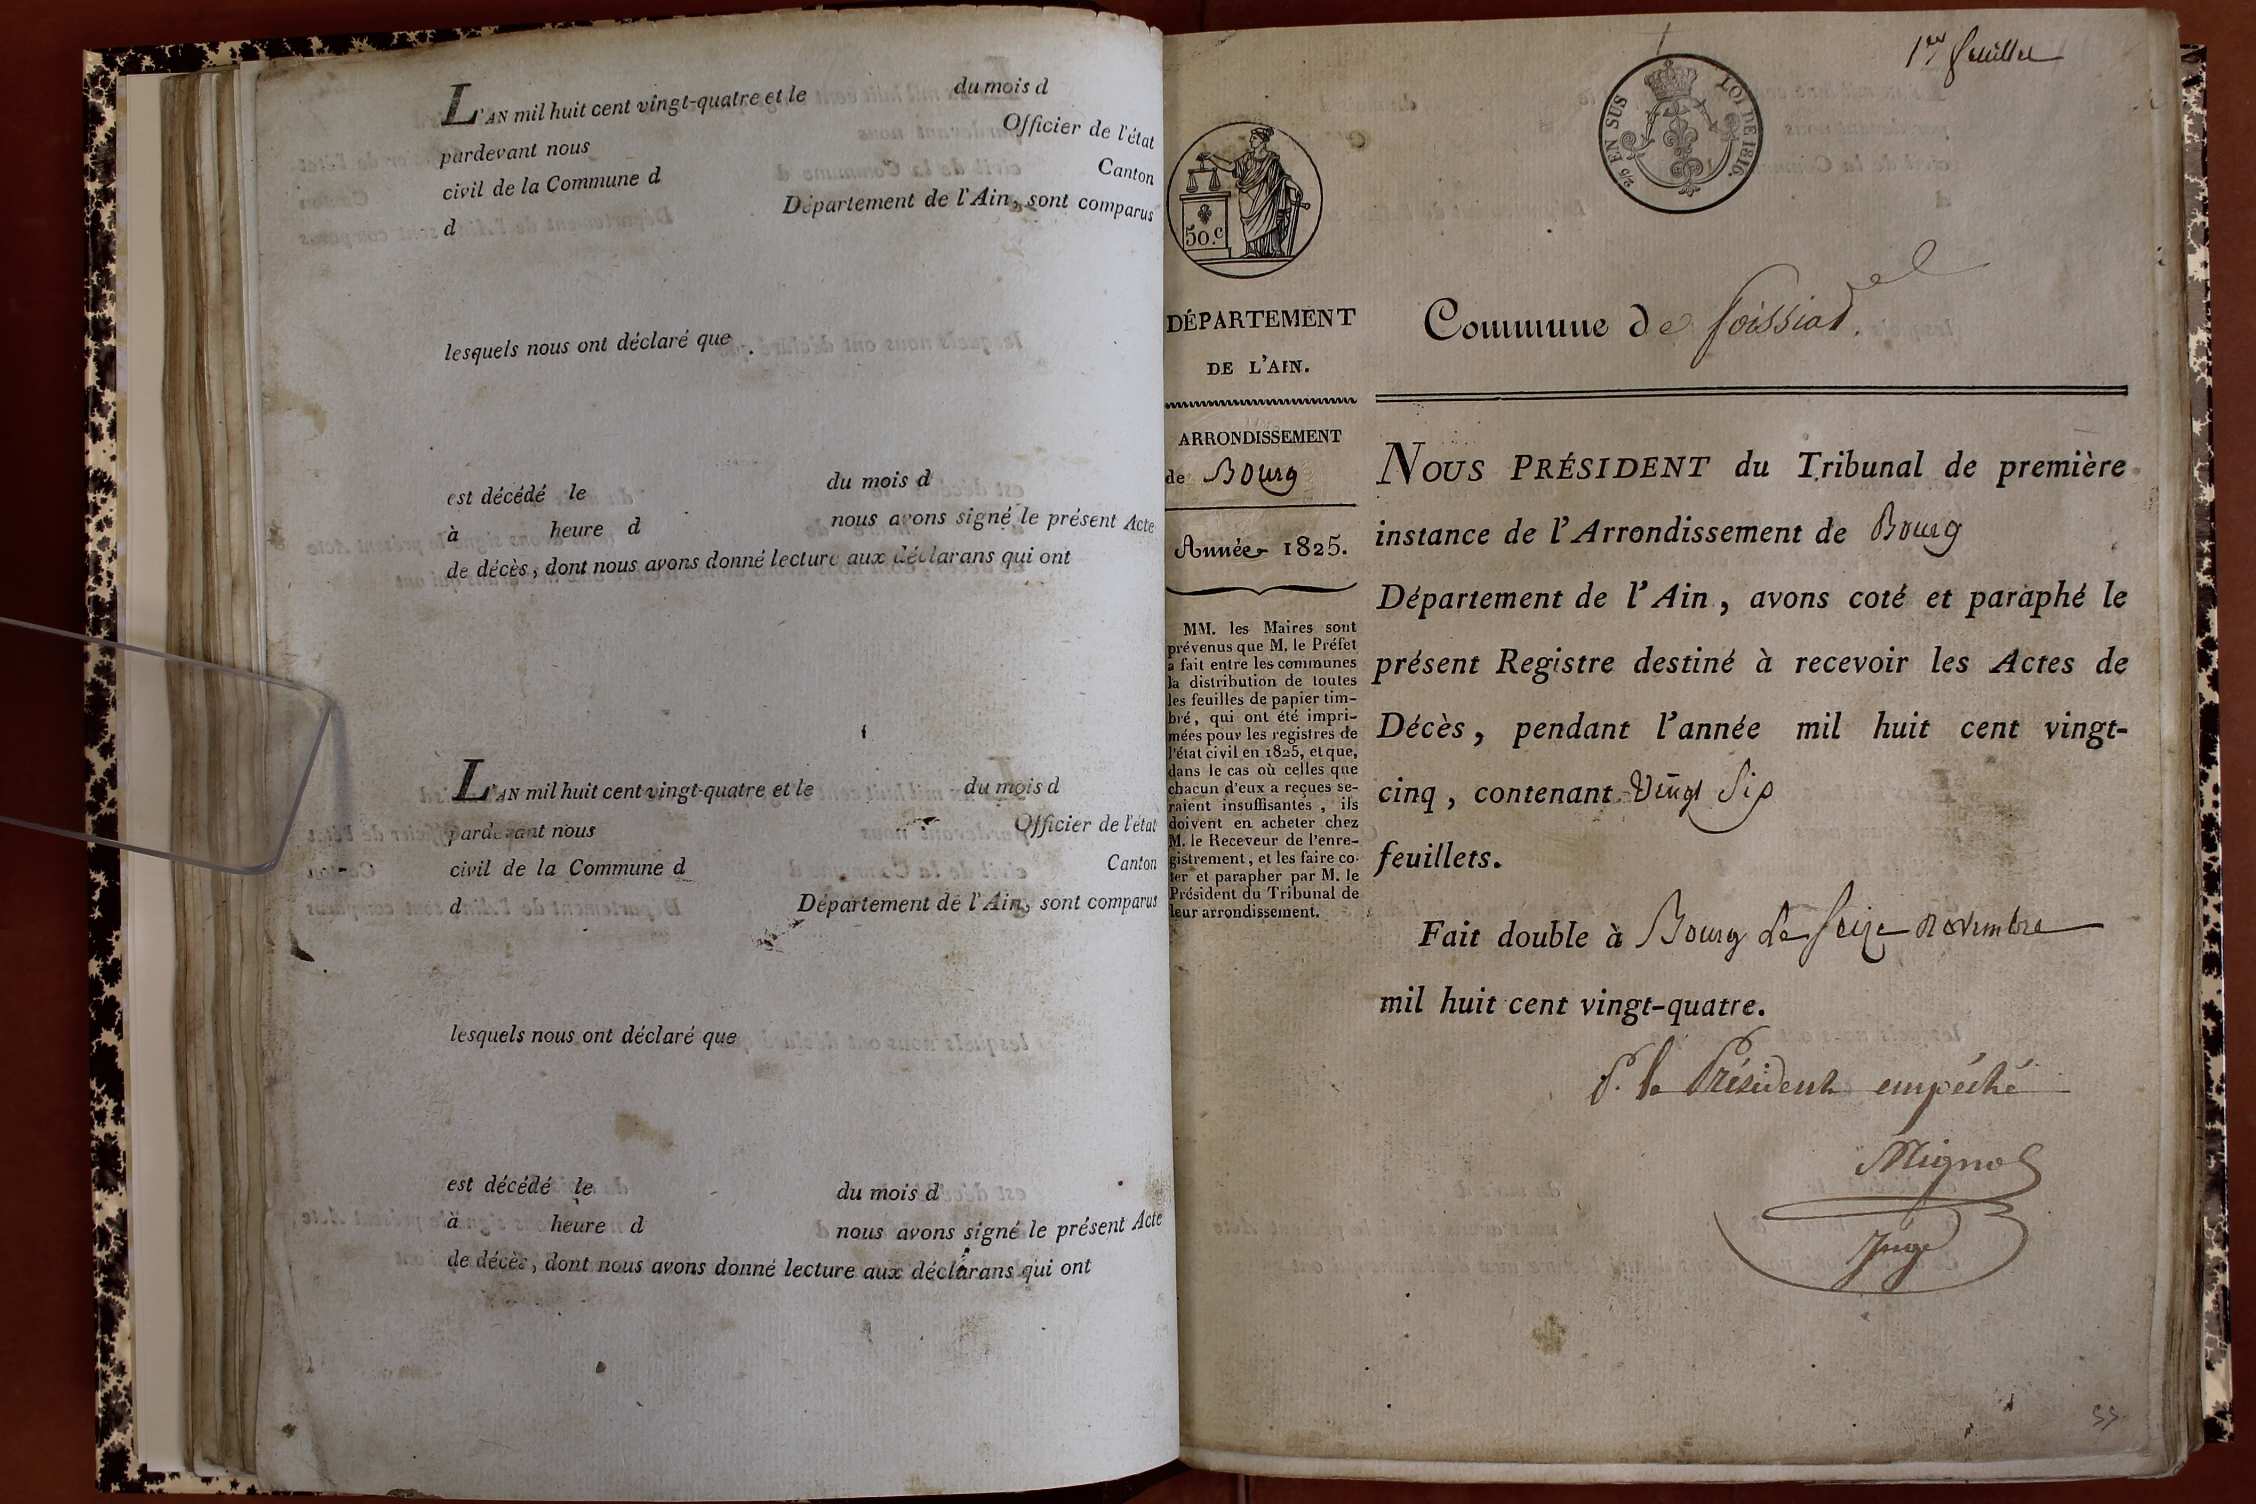 L'AN mil huit cent vingt-quatre et le du mois d
pardevant nous Officier de l'état
civil de la Commune d Canton
d Département de l'Ain, sont comparus
lesquels nous ont déclaré que
est décédé le du mois d
à heure d nous avons signé le présent Acte
de décès, dont nous avons donné lecture aux déclarans qui ont
L'AN mil huit cent vingt-quatre et le du mois d
pardevant nous Officier de l'état
civil de la Commune d Canton
d Département de l'Ain, sont comparus
lesquels nous ont déclaré que
est décédé le du mois d
à heure d nous avons signé le présent Acte
de décès, dont nous avons donné lecture aux déclarans qui ont
1er feuillet
EN SUS LOI DE 1816.
50.c
DÉPARTEMENT
DE L'AIN.
ARRONDISSEMENT
de Bourg
Année 1825.
MM. les Maires sont
prévenus que M. le Préfet
a fait entre les communes
la distribution de toutes
les feuilles de papier tim-
bré, qui ont été impri-
mées pour les registres de
l'état civil en 1825, et que,
dans le cas où celles que
chacun d'eux a reçues se-
raient insuffisantes, ils
doivent en acheter chez
M. le Receveur de l'enre-
gistrement, et les faire co-
ter et parapher par M. le
Président du Tribunal de
leur arrondissement.
Commune de foissiat.
NOUS PRÉSIDENT du Tribunal de première
instance de l'Arrondissement de Bourg
Département de l'Ain, avons coté et paraphé le
présent Registre destiné à recevoir les Actes de
Décès, pendant l'année mil huit cent vingt-
cinq, contenant Vingt Six
feuillets.
Fait double à Bourg le seize novembre
mil huit cent vingt-quatre.
P. le Président empêché
Mignot
Juge
55